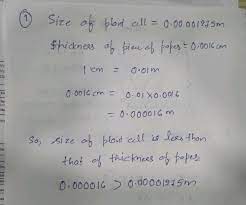 ① Size of plant cell = 0.00001275m
Thickness of piece of paper = 0.0016cm
1 cm = 0.01m
0.0016cm = 0.01 x 0.0016
= 0.000016m
So, size of plant cell is less than
that of thickness of paper
0.000016 > 0.00001275m